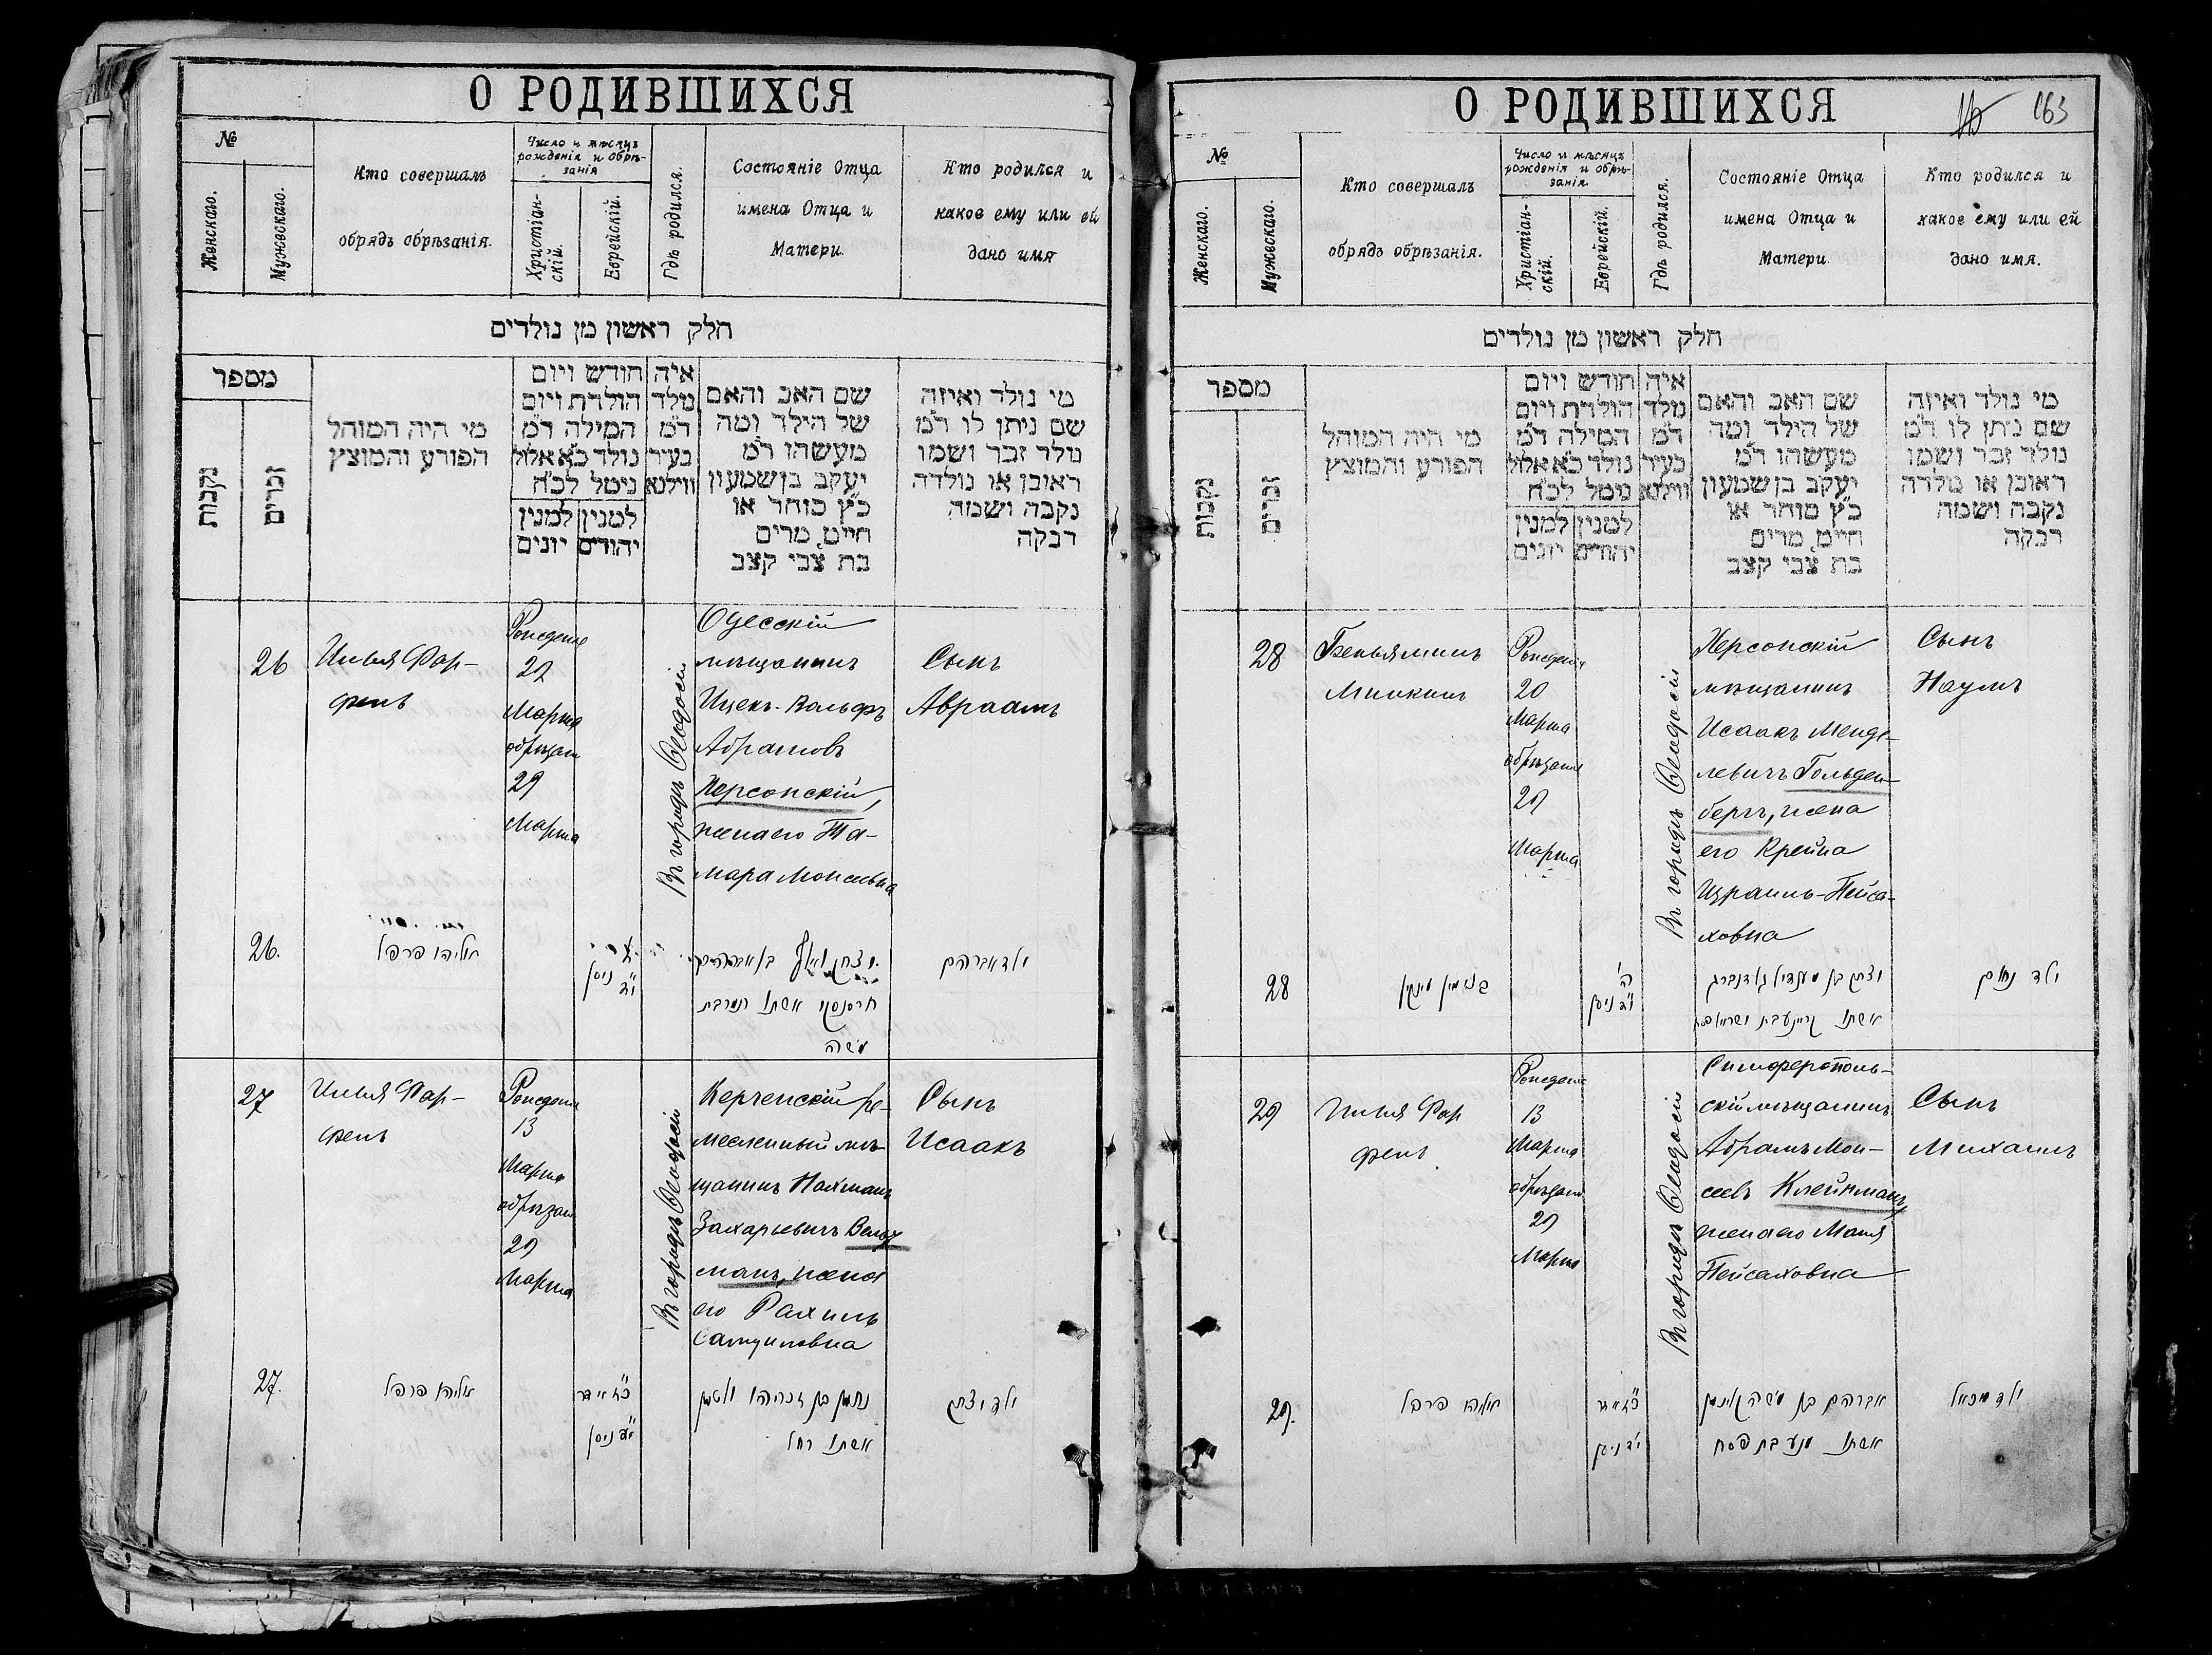 О РОДИВШИХСЯ
№
Женскаго.
Мужескаго.
Кто совершалъ
обрядъ обрѣзанія.
Число и мѣсяцъ
рожденія и обрѣ-
занія
Христіан-
скій.
Еврейскій.
Гдѣ родился.
Состояніе Отца
имена Отца и
Матери.
Кто родился и
какое ему или ей
дано имя
חלק ראשון מן נולדים
מספר
נקבות
זכרים
מי היה המוהל
הפורע והמוצץ
חודש ויום
הולדת ויום
המילה ד״מ
נולד כ״א אלול
ניטל לכ״ח
למנין למנין
יהודים יונים
איה
נולד
ד״מ
בעיר
ווילנא
שם האב והאם
של הילד ומה
מעשהו ד״מ
יעקב בן שמעון
כ״ץ סוחר או
חייט מרים
בת צבי קצב
מי נולד ואיזה
שם ניתן לו ד״מ
נולד זכר ושמו
ראובן או נולדה
נקבה ושמה
רבקה
26
Илья Фар-
фель
22
Марта
29
Марта
Въ городѣ Ѳеодосіи
Одесскій
мѣщанинъ
Ицекъ-Вольфъ
Абрамовъ
Херсонскій,
жена его Та-
мара Моисеевна
Сынъ
Авраамъ
26.
אליהו פרפל
ניסן
יצחק וואלף בן אברהם
אשתו תמר בת
משה
ילד אברהם
27
Илья Фар-
фель
13
Марта
29
Марта
Въ городѣ Ѳеодосіи
Керченскій ре-
месленный мѣ-
щанинъ Нахманъ
Захарьевичъ
манъ, жена
его Рахиль
Самуиловна
Сынъ
Исаакъ
27.
אליהו פרפל
ניסן
נחמן בן זכריהו
אשתו רחל
ילד יצחק
О РОДИВШИХСЯ
163
№
Женскаго.
Мужескаго.
Кто совершалъ
обрядъ обрѣзанія.
Число и мѣсяцъ
рожденія и обрѣ-
занія.
Христіан-
скій.
Еврейскій.
Гдѣ родился.
Состояніе Отца
имена Отца и
Матери.
Кто родился и
какое ему или ей
дано имя.
חלק ראשון מן נולדים
מספר
נקבות
זכרים
מי היה המוהל
הפורע והמוצץ
חודש ויום
הולדת ויום
המילה ד״מ
נולד כ״א אלול
ניטל לכ״ח
למנין למנין
יהודים יונים
איה
נולד
ד״מ
בעיר
ווילנא
שם האב והאם
של הילד ומה
מעשהו ד״מ
יעקב בן שמעון
כ״ץ סוחר או
חייט מרים
בת צבי קצב
מי נולד ואיזה
שם ניתן לו ד״מ
נולד זכר ושמו
ראובן או נולדה
נקבה ושמה
רבקה
28
Беньяминъ
Минкинъ
20
Марта
29
Марта
Въ городѣ Ѳеодосіи
Херсонскій
мѣщанинъ
Исаакъ Менде-
левичъ Гольден-
бергъ, жена
его Крейна
Израиль-Пейса-
ховна
Сынъ
Наумъ
28
בנימין מינקין
ניסן
יצחק בן מענדיל גולדנברג
אשתו
ילד נחום
29
Илья Фар
фель
13
Марта
29
Марта
Въ городѣ Ѳеодосіи
Симферополь-
скій мѣщанинъ
Абрамъ Мои-
сеевъ Клейнманъ,
жена его Маня
Пейсаховна
Сынъ
Михаилъ
29.
אליהו פרפל
ניסן
אברהם בן משה קליינמן
אשתו מניע בת פסח
ילד מיכאל